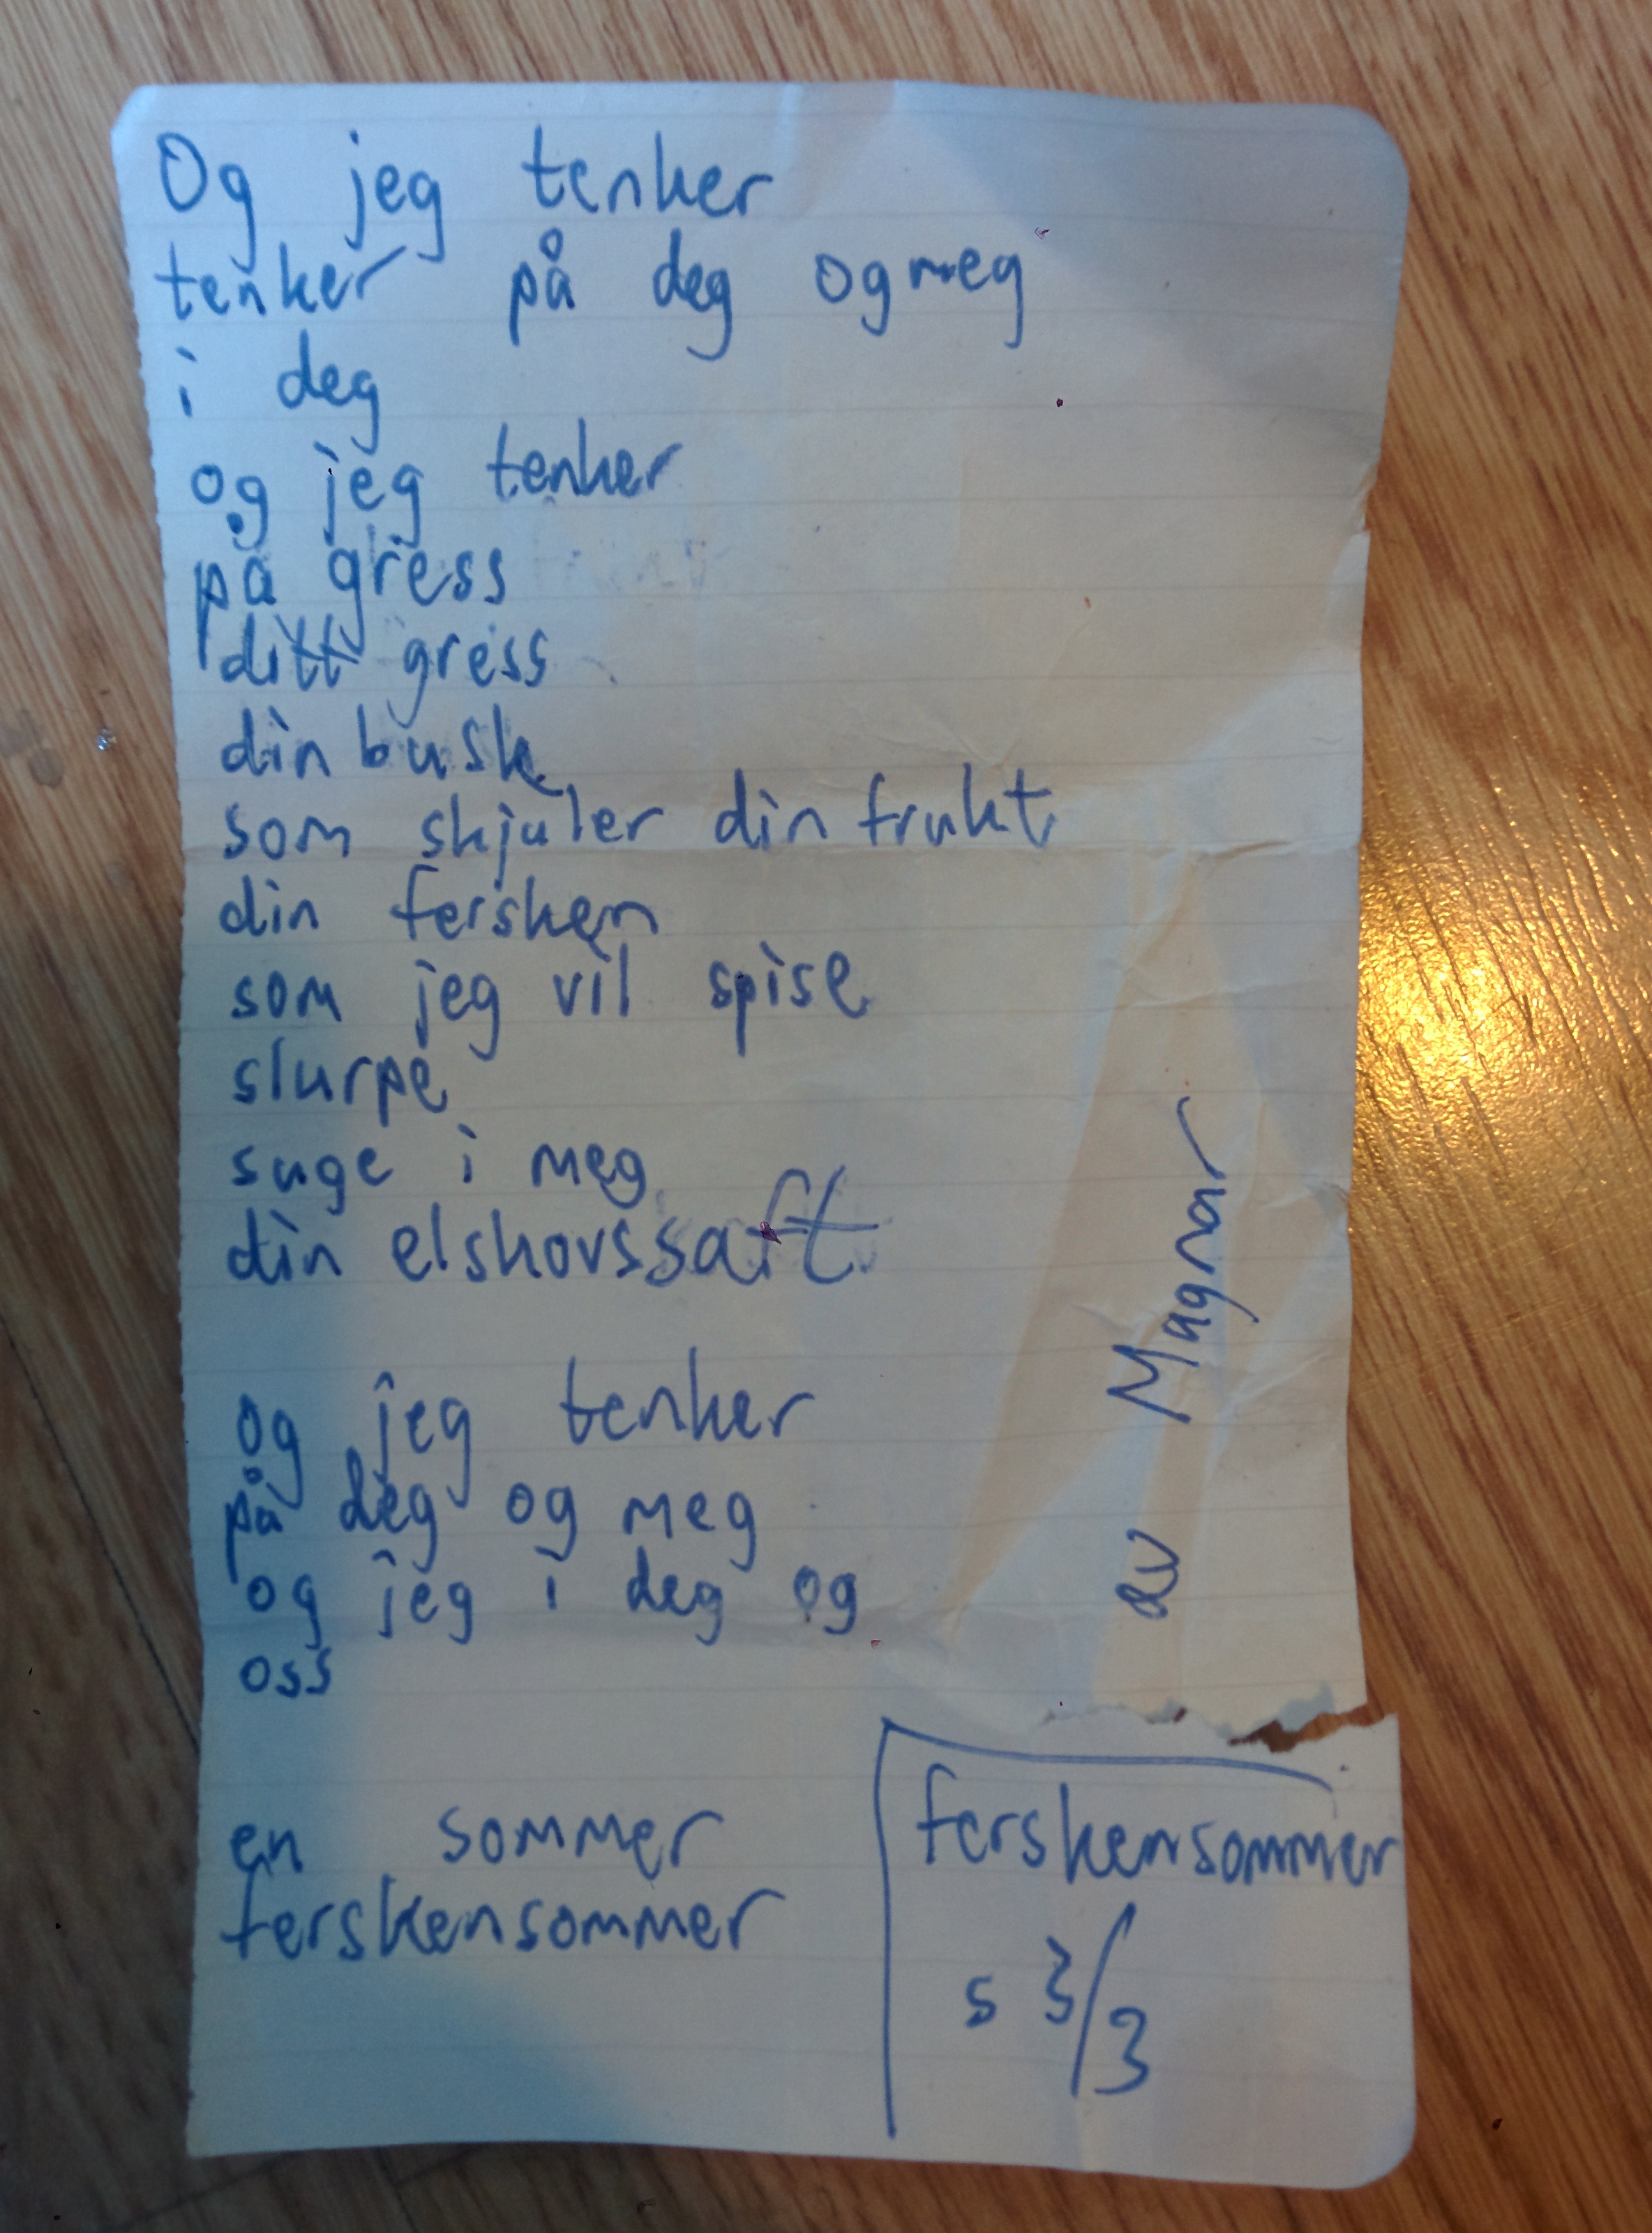 Og jeg tenker
tenker på deg og meg
i deg
og jeg tenker
på gress
ditt gress
din busk
som skjuler din frukt
din fersken
som jeg vil spise
slurpe
suge i meg
din elskovssaft
og jeg tenker
på deg og meg
og jeg i deg og
oss
en sommer
ferskensommer
av Magnar
ferskensommer
s 3/3